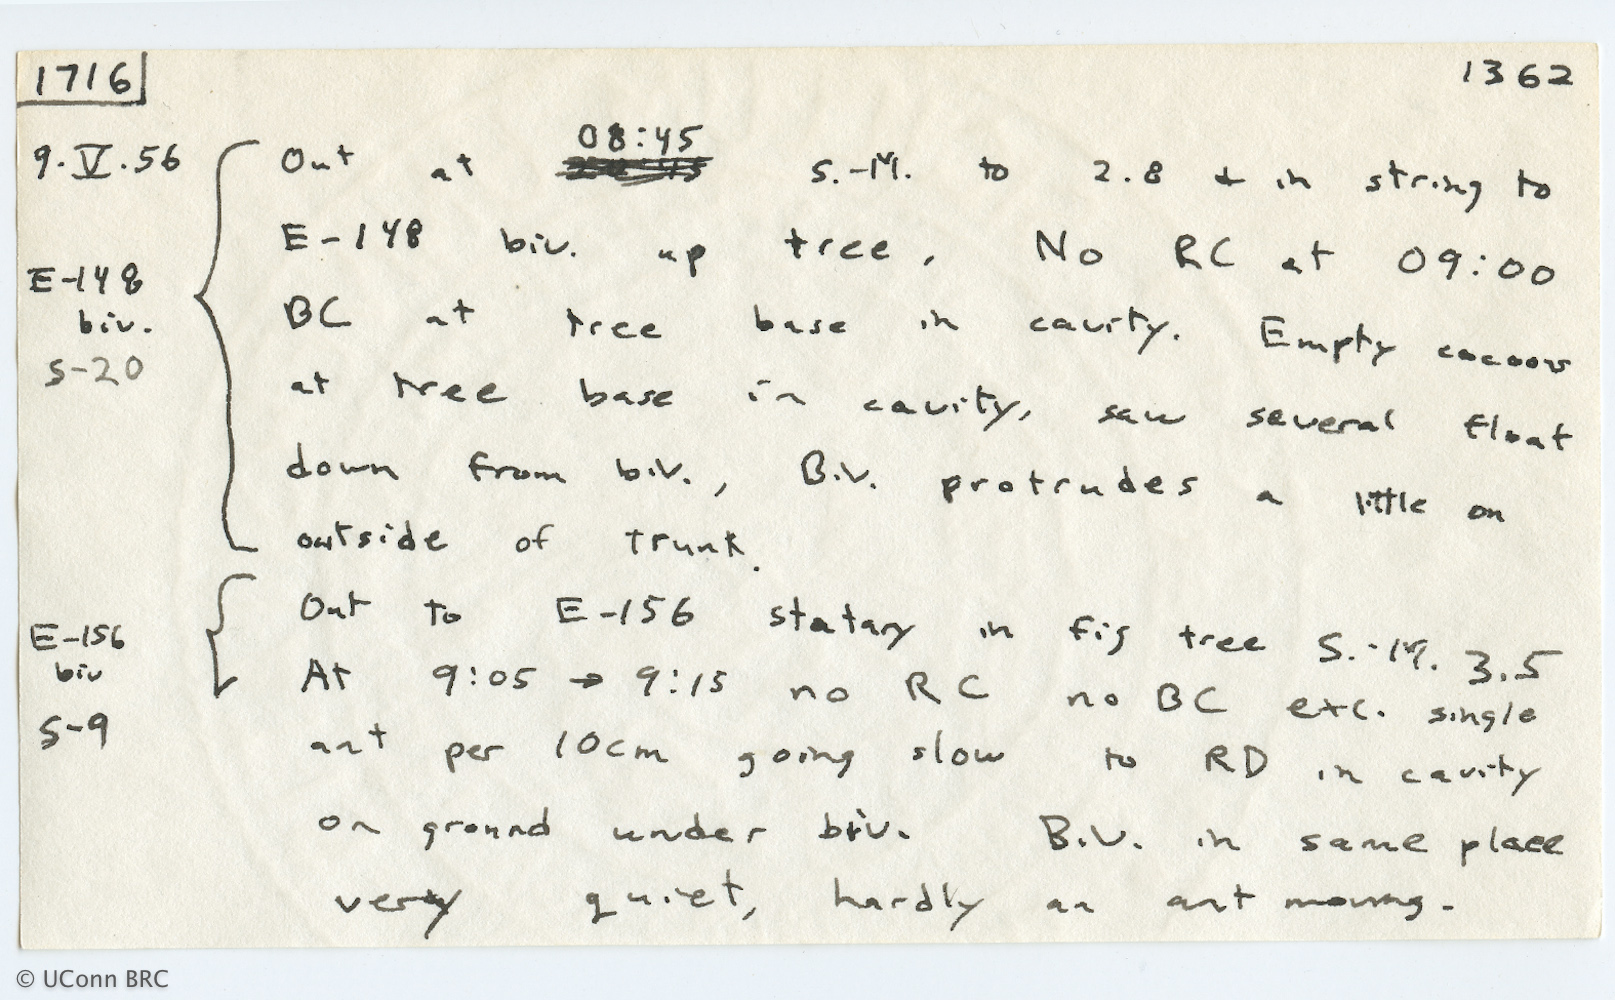 1716
1362
9.V.56
Out at 08:45 S.-M. to 2.8 & in string to
E-148 biv. up tree, No RC at 09:00
E-148
biv.
S-20
BC at tree base in cavity. Empty cocoons
at tree base in cavity, saw several float
down from biv., Biv. protrudes a little on
outside of trunk.
Out to E-156 statary in fig tree S.-M. 3.5
E-156
biv
S-9
At 9:05 → 9:15 no RC no BC exc. single
ant per 10cm going slow to RD in cavity
on ground under biv. Biv. in same place
very quiet, hardly an ant moving.
© UConn BRC